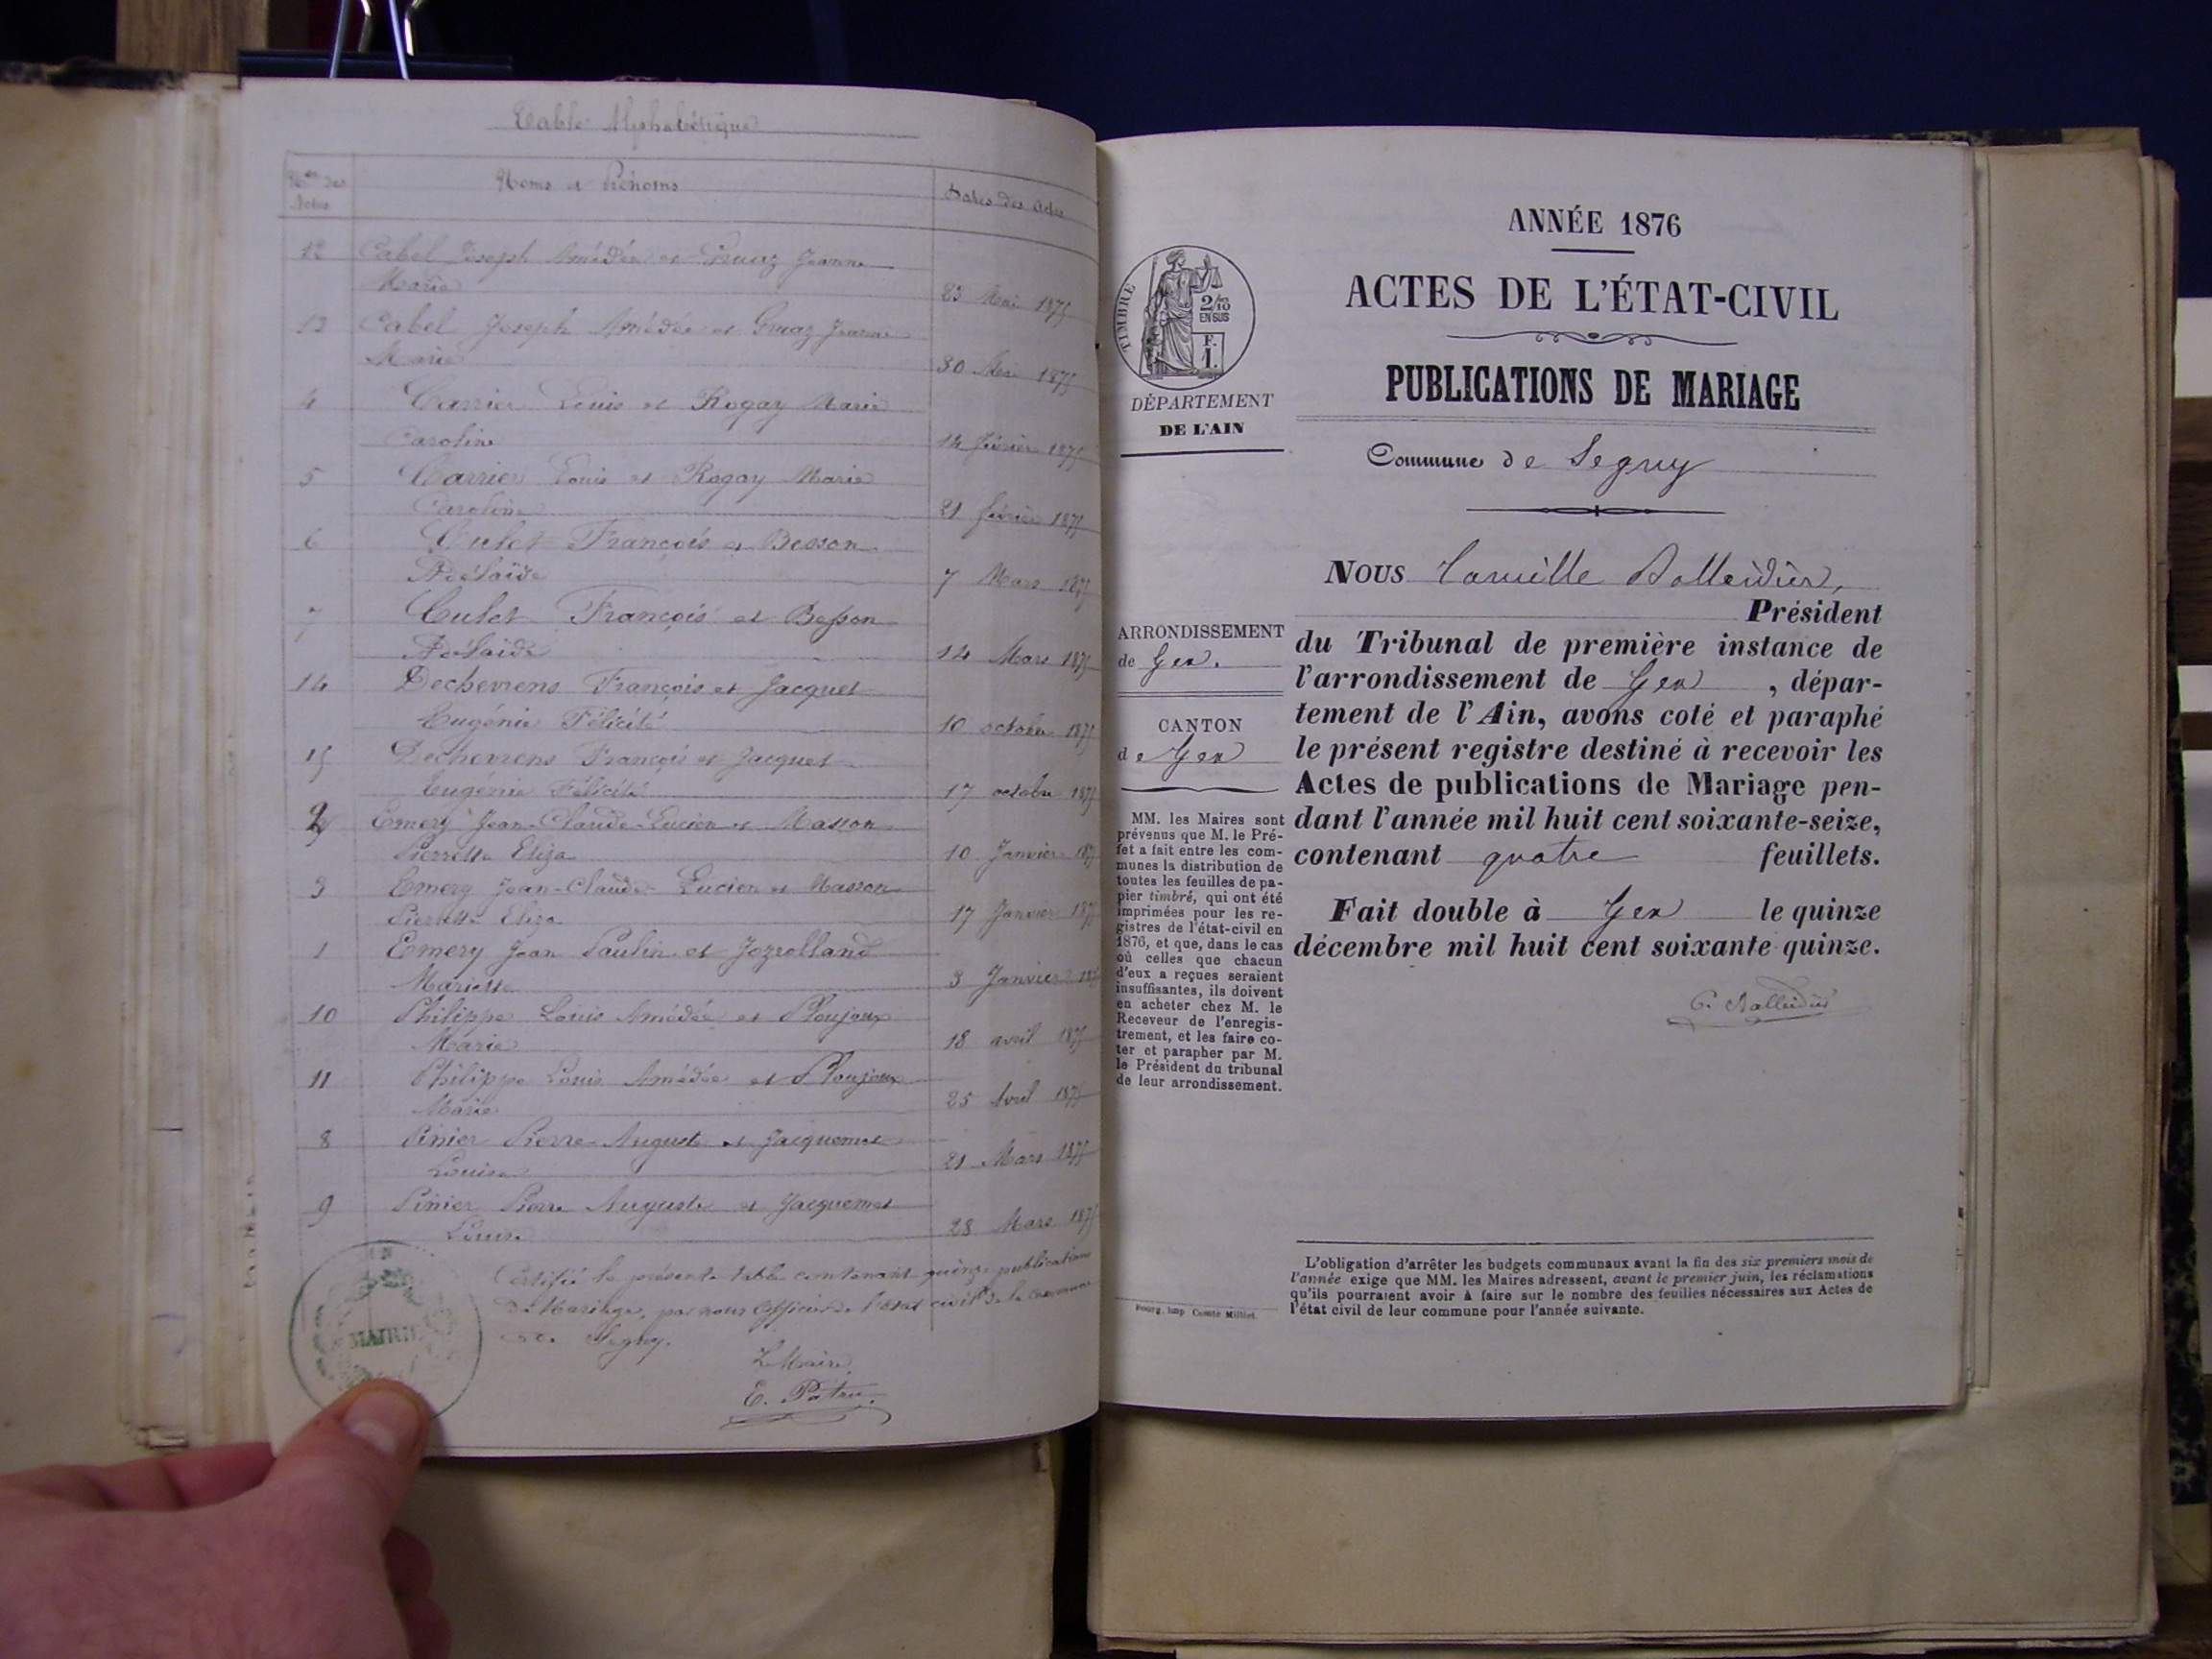 Table Alphabétique
Nos des Actes
Noms et Prénoms
Dates des Actes
12 Cabel Joseph Amédée et Gruaz Jeanne
Marie 23 Mai 1875
13 Cabel Joseph Amédée et Gruaz Jeanne
Marie 30 Mai 1875
4 Carrier Louis et Rogay Marie
Caroline 14 février 1875
5 Carrier Louis et Rogay Marie
Caroline 21 février 1875
6 Culet François et Besson
Adélaïde 7 Mars 1875
7 Culet François et Besson
Adélaïde 14 Mars 1875
14 Dechevrens François et Jacquet
Eugénie Félicité 10 octobre 1875
15 Dechevrens François et Jacquet
Eugénie Félicité 17 octobre 1875
2 Emery Jean-Claude-Lucien et Masson
Pierrette Eliza 10 Janvier 187
3 Emery Jean-Claude-Lucien et Masson
Pierrette Eliza 17 Janvier 187
1 Emery Jean Paulin et Jozrolland
Mariette 3 Janvier 187
10 Philippe Louis Amédée et Ploujoux
Marie 18 avril 1875
11 Philippe Louis Amédée et Ploujoux
Marie 25 Avril 1875
8 Pinier Pierre Auguste et Jacquemet
Louise 21 Mars 1875
9 Pinier Pierre Auguste et Jacquemet
Louise 28 Mars 1875
Certifié la présente table contenant quinze publications
de Mariage, par nous Officier de l'état civil de la Commune
de Segny.
MAIRIE
Le Maire
E. Patru
ANNÉE 1876
ACTES DE L'ÉTAT-CIVIL
PUBLICATIONS DE MARIAGE
TIMBRE
2/10
EN SUS
F.
1.
DÉPARTEMENT
DE L'AIN
Commune de Segny
ARRONDISSEMENT
de Gex.
CANTON
de Gex
MM. les Maires sont
prévenus que M. le Pré-
fet a fait entre les com-
munes la distribution de
toutes les feuilles de pa-
pier timbré, qui ont été
imprimées pour les re-
gistres de l'état-civil en
1876, et que, dans le cas
où celles que chacun
d'eux a reçues seraient
insuffisantes, ils doivent
en acheter chez M. le
Receveur de l'enregis-
trement, et les faire co-
ter et parapher par M.
le Président du tribunal
de leur arrondissement.
Bourg, imp. Comte Milliet.
NOUS Camille Balleidier,
Président
du Tribunal de première instance de
l'arrondissement de Gex, dépar-
tement de l'Ain, avons coté et paraphé
le présent registre destiné à recevoir les
Actes de publications de Mariage pen-
dant l'année mil huit cent soixante-seize,
contenant quatre feuillets.
Fait double à Gex le quinze
décembre mil huit cent soixante-quinze.
C. Balleidier
L'obligation d'arrêter les budgets communaux avant la fin des six premiers mois de
l'année exige que MM. les Maires adressent, avant le premier juin, les réclamations
qu'ils pourraient avoir à faire sur le nombre des feuilles nécessaires aux Actes de
l'état civil de leur commune pour l'année suivante.